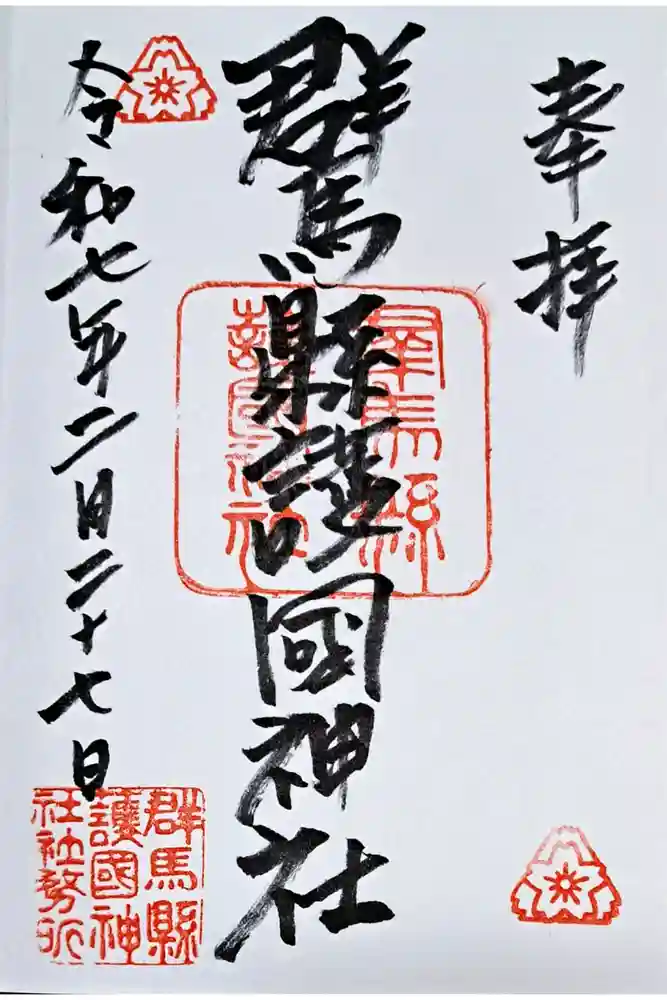 奉拝
群馬縣護國神社
群馬縣
護國神社
令和七年二月二十七日
群馬縣
護國神
社社務所